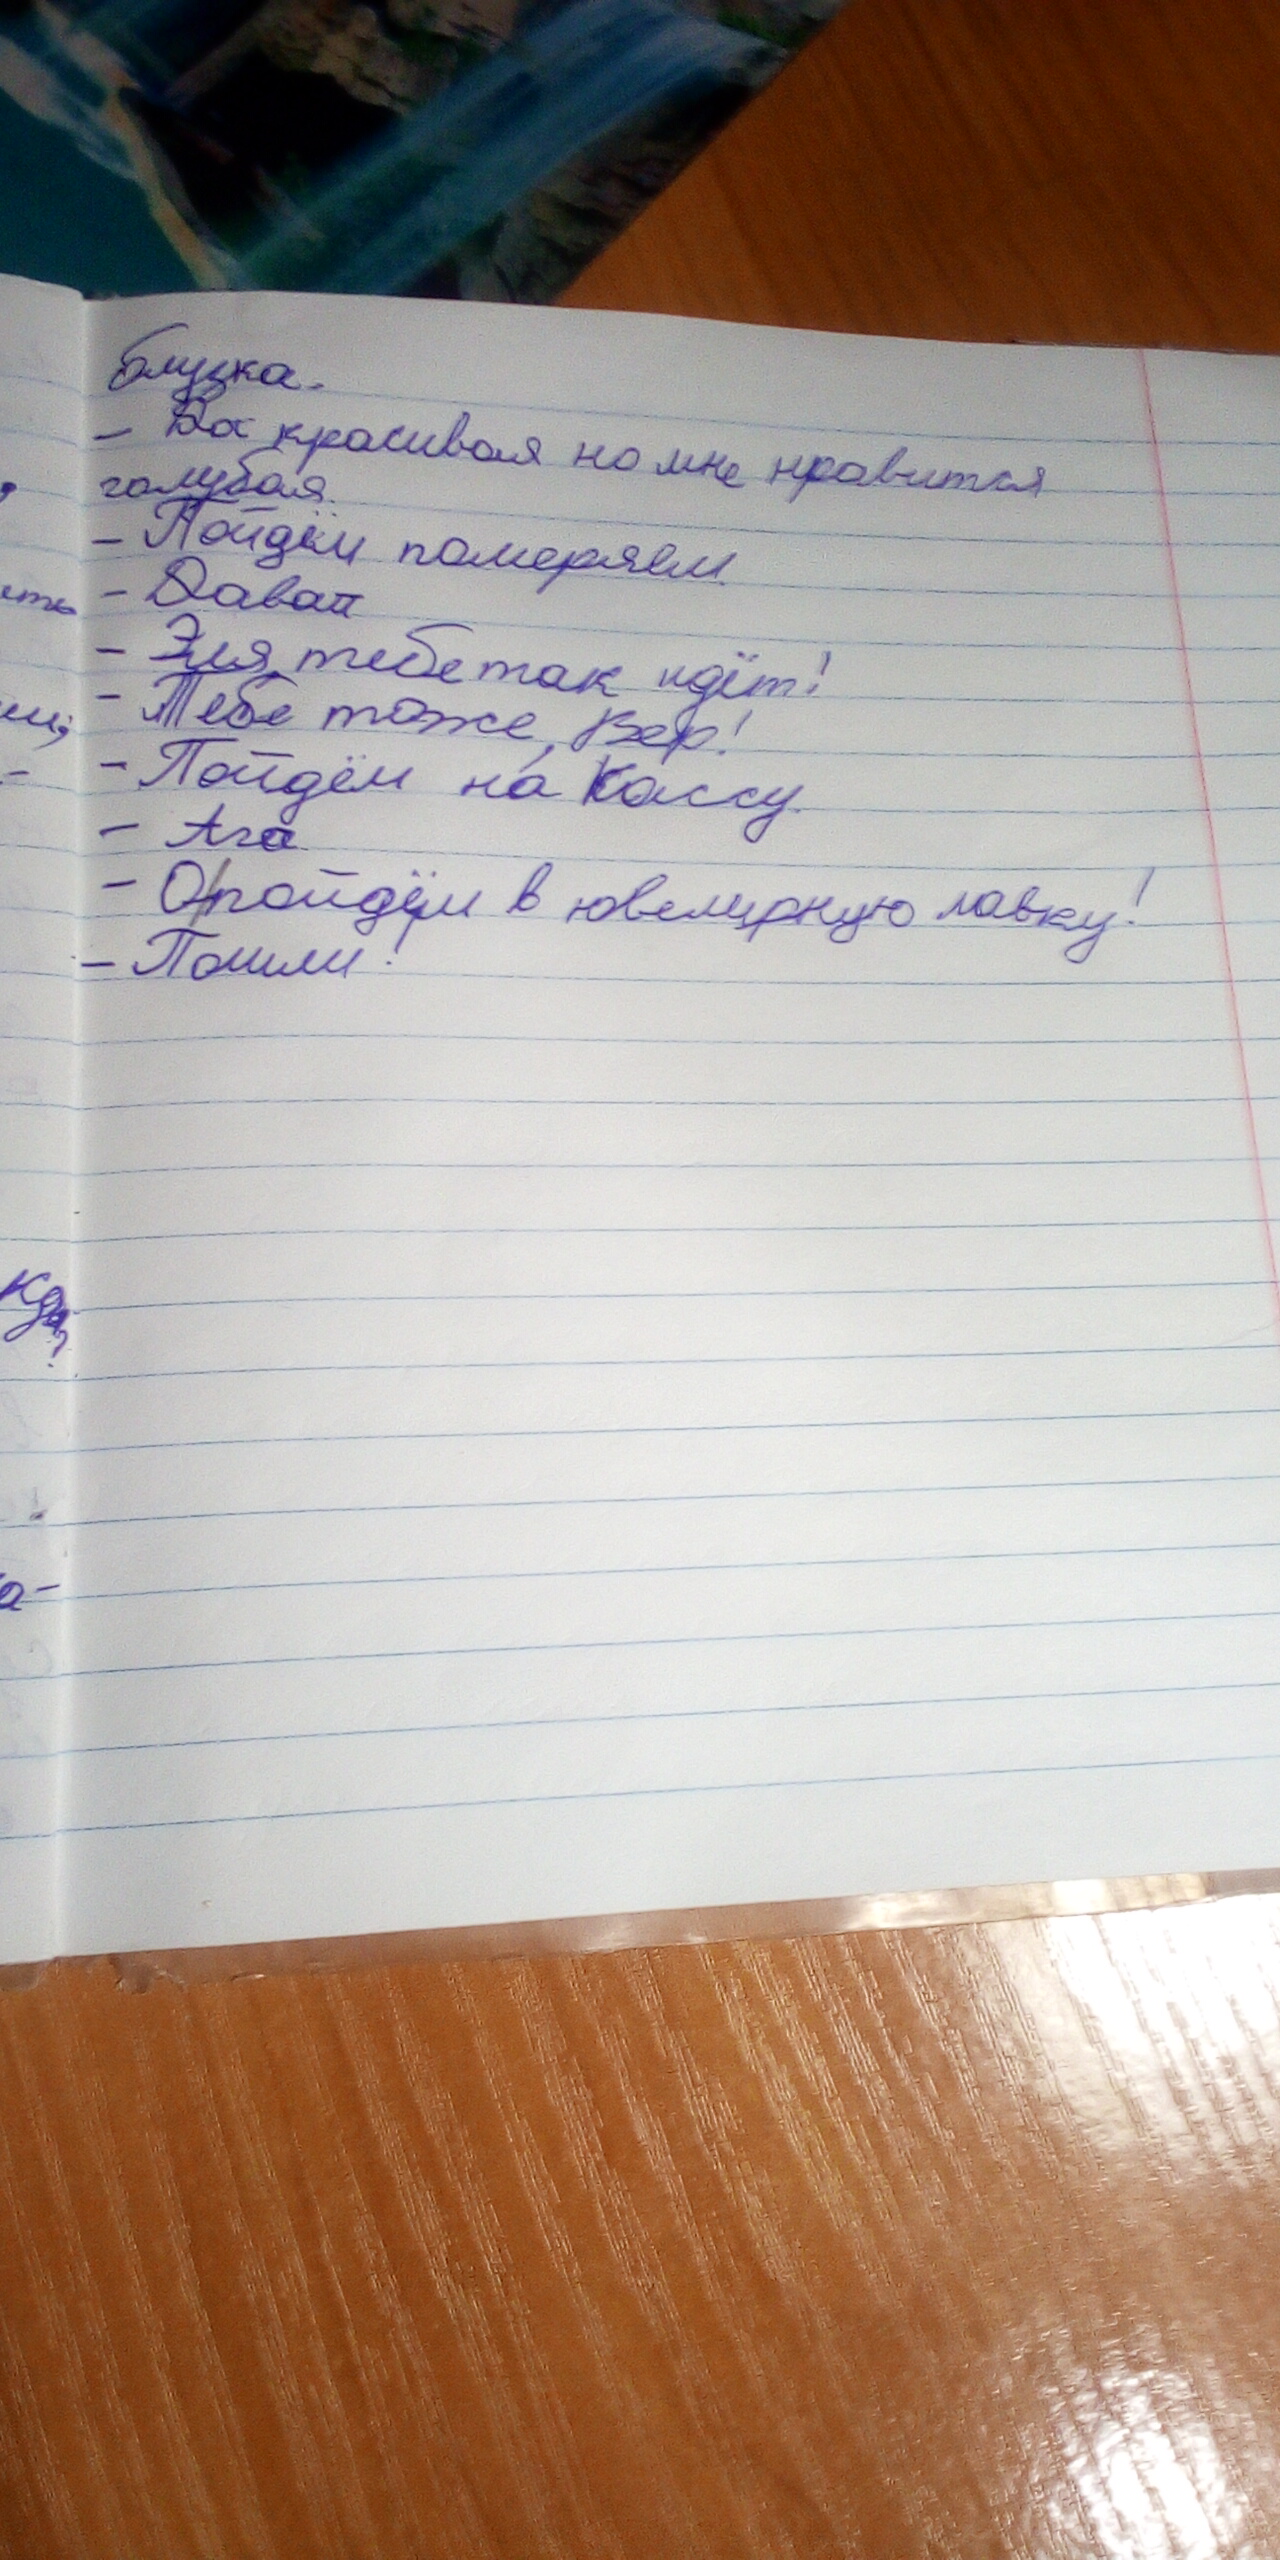 блузка.
- Да красивая но мне нравится
голубая.
- Пойдём померяем
- Давай
- Эля, тебе так идёт!
- Тебе тоже, Вер!
- Пойдём на кассу.
- Ага
- О, пойдём в ювелирную лавку!
- Пошли!